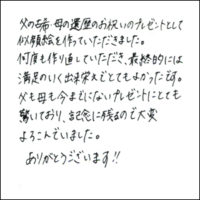 父の古希・母の還暦のお祝いのプレゼントとして
似顔絵を作っていただきました。
何度も作り直していただき、最終的には
満足のいく出来栄えでとてもよかったです。
父も母も今までにないプレゼントにとても
驚いており、記念に残るので大変
よろこんでいました。
ありがとうございます!!